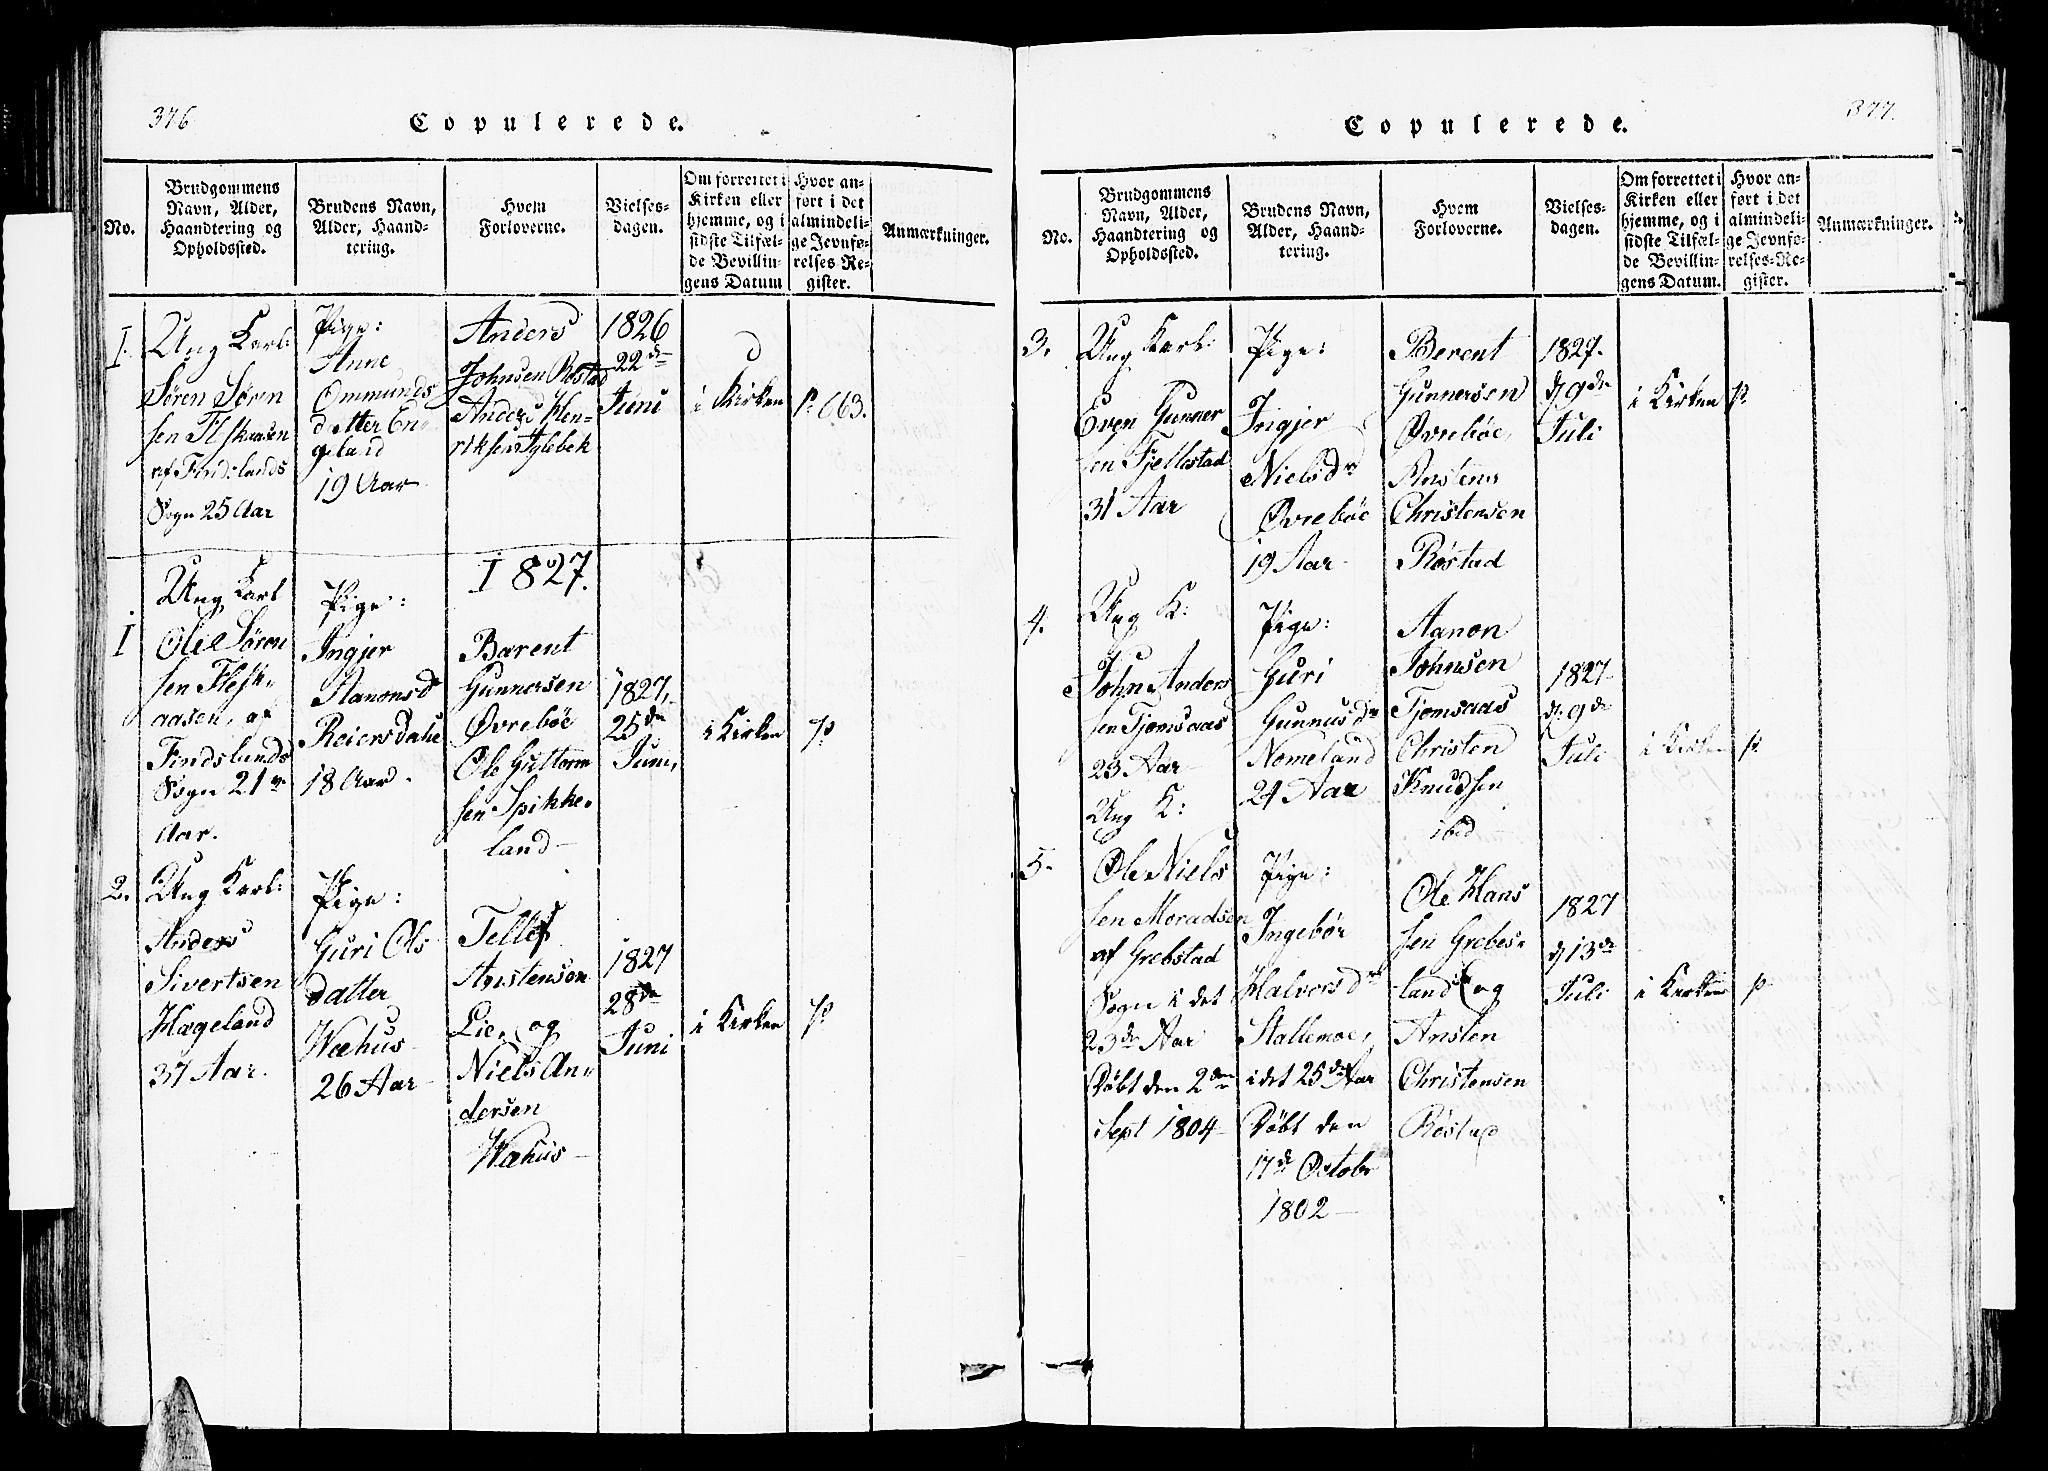 376
Copulerede.
No.
Brudgommens
Navn, Alder,
Haandtering og
Opholdssted.
Brudens Navn,
Alder, Haand-
tering.
Hvem
Forloverne.
Vielses-
dagen.
Om forrettet i
Kirken eller
hjemme, og i
sidste Tilfæl-
de Bevillin-
gens Datum
Hvor an-
ført i det
almindeli-
ge Jevnfø-
relses Re-
gister.
Anmærkninger.
1.
Ung Karl:
Søren Søren
sen
af Findslands
Sogn 25 Aar
Pige:
Anne
Ommunds
datter En-
geland
19 Aar
Anders
Johnsen Røstad
Anders Hen-
riksen Aglebek
1826
22de
Juni
i Kirken
p. 663.
1827.
1
Ung Karl
Ole Søren
sen Flesk-
aasen, af
Findslands
Sogn 21
Aar.
Pige:
Ingjer
Aanonsdr
Reiersdahl
18 Aar.
Barent
Gunnersen
Øvrebøe
Ole Guttorm
sen Spikke-
land
1827,
25de
Juni,
i Kirken
p.
2.
Ung Karl:
Anders
Sivertsen
Hægeland
37 Aar.
Pige:
Guri Ols
datter
Wæhus
26 Aar
Tellef
Lie, og
Niels An-
dersen
Wæhus
1827
28de
Juni
i Kirken
p.
377.
Copulerede.
No.
Brudgommens
Navn, Alder,
Haandtering og
Opholdssted.
Brudens Navn,
Alder, Haand-
tering.
Hvem
Forloverne.
Vielses-
dagen.
Om forrettet i
Kirken eller
hjemme, og i
sidste Tilfæl-
de Bevillin-
gens Datum.
Hvor an-
ført i det
almindeli-
ge Jevnfø-
relses-Re-
gister.
Anmærkninger.
3.
Ung Karl:
Even Gunner
sen Fjellestad
31 Aar
Pige:
Ingjer
Nielsdr
Øvrebøe
19 Aar
Berent
Gunnersen
Øvrebøe,
Ansten
Christensen
Røstad
1827.
d 9de
Juli
i Kirken
p.
4.
Ung K:
John Anders
sen Tjomsaas
23 Aar
Pige:
Guri
Gunnusdr
Nomeland
24 Aar
Aanon
Johnsen
Tjomsaas
Christen
Knudsen
ibid
1827
d. 9de
Juli
i Kirken
p.
5.
Ung K:
Ole Niels
sen Moradsen
af Grebstad
Sogn i det
23de Aar
Døbt den 2den
Sept 1804
Pige:
Ingebør
Halvorsdr
Stallemoe,
i det 25de Aar
Døbt den
17de Octobr
1802
Ole Hans
sen Grebes-
land og
Ansten
Christensen
Røstad
1827
d 13de
Juli
i Kirken
p.